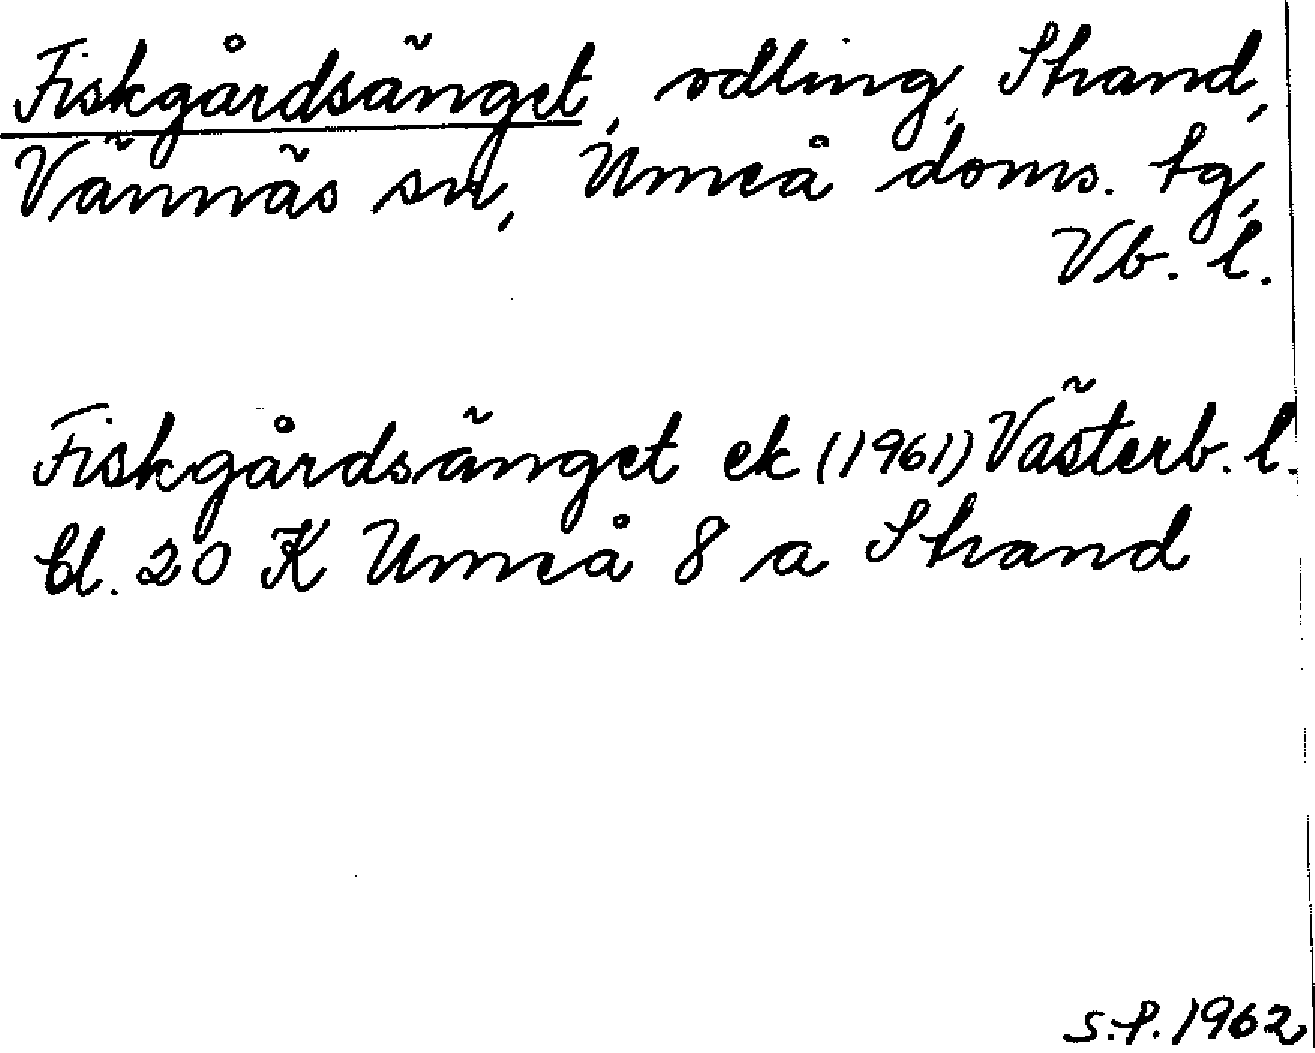 Fiskgårdsänget, odling, Strand,
Vännäs sn, Umeå doms. tg,
Vb. l.
Fiskgårdsänget ek (1961) Västerb. l.
bl. 20 K Umeå 8 a Strand
S.P. 1962